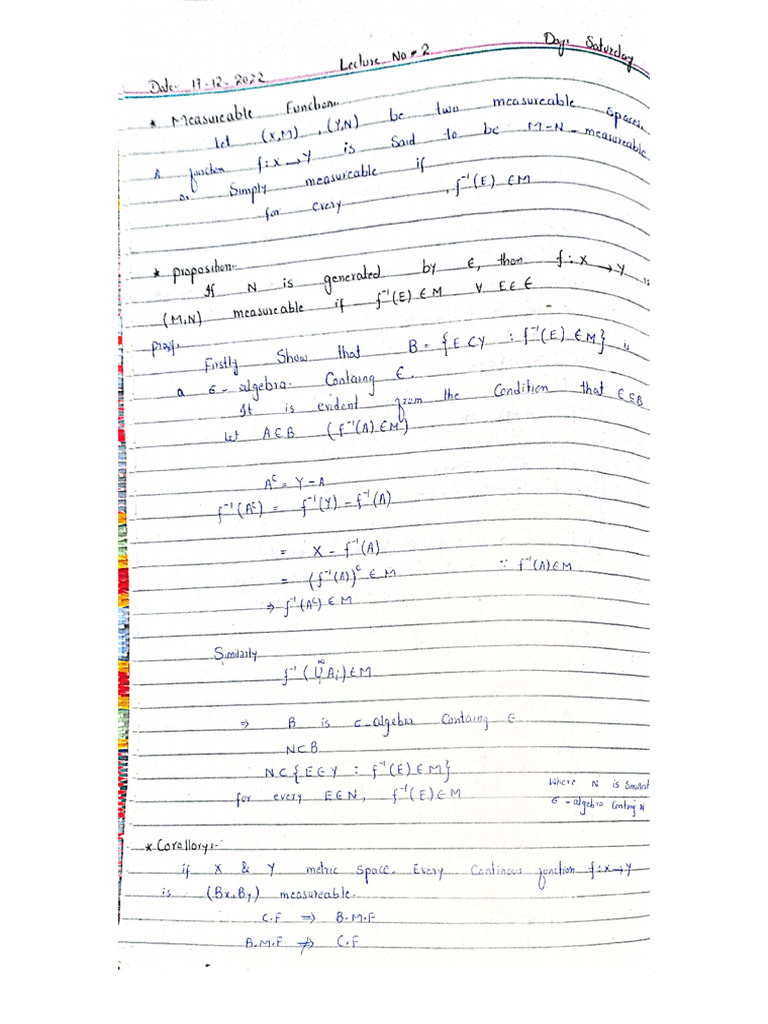 Date: 17-12-2022 Lecture No # 2 Day: Saturday
* Measureable Function:-
Let (X,M) , (Y,N) be two measureable spaces.
A function f: X → Y is Said to be M-N-measureable
or Simply measureable if
for every , f⁻¹(E) ∈ M
* Proposition:-
If N is generated by ϵ, then f: X → Y is
(M,N) measureable if f⁻¹(E) ∈ M ∀ E ∈ ϵ
Proof.
Firstly Show that B = {E ⊂ Y : f⁻¹(E) ∈ M} is
a σ-algebra. Containg ϵ.
It is evident from the Condition that ϵ ⊆ B
Let A ∈ B (f⁻¹(A) ∈ M)
Aᶜ = Y - A
f⁻¹(Aᶜ) = f⁻¹(Y) - f⁻¹(A)
= X - f⁻¹(A)
= (f⁻¹(A))ᶜ ∈ M ∵ f⁻¹(A) ∈ M
⇒ f⁻¹(Aᶜ) ∈ M
Similarly
f⁻¹(∪₁^∞ Aᵢ) ∈ M
⇒ B is σ-algebra Containg ϵ
N ⊂ B
N ⊂ {E ∈ Y : f⁻¹(E) ∈ M}
for every E ∈ N, f⁻¹(E) ∈ M
Where N is Smallest
σ-algebra Containg N
* Corollory:-
if X & Y metric space. Every Continous function f: X → Y
is (Bx, By) measureable.
C.F ⇒ B.M.F
B.M.F ⇏ C.F